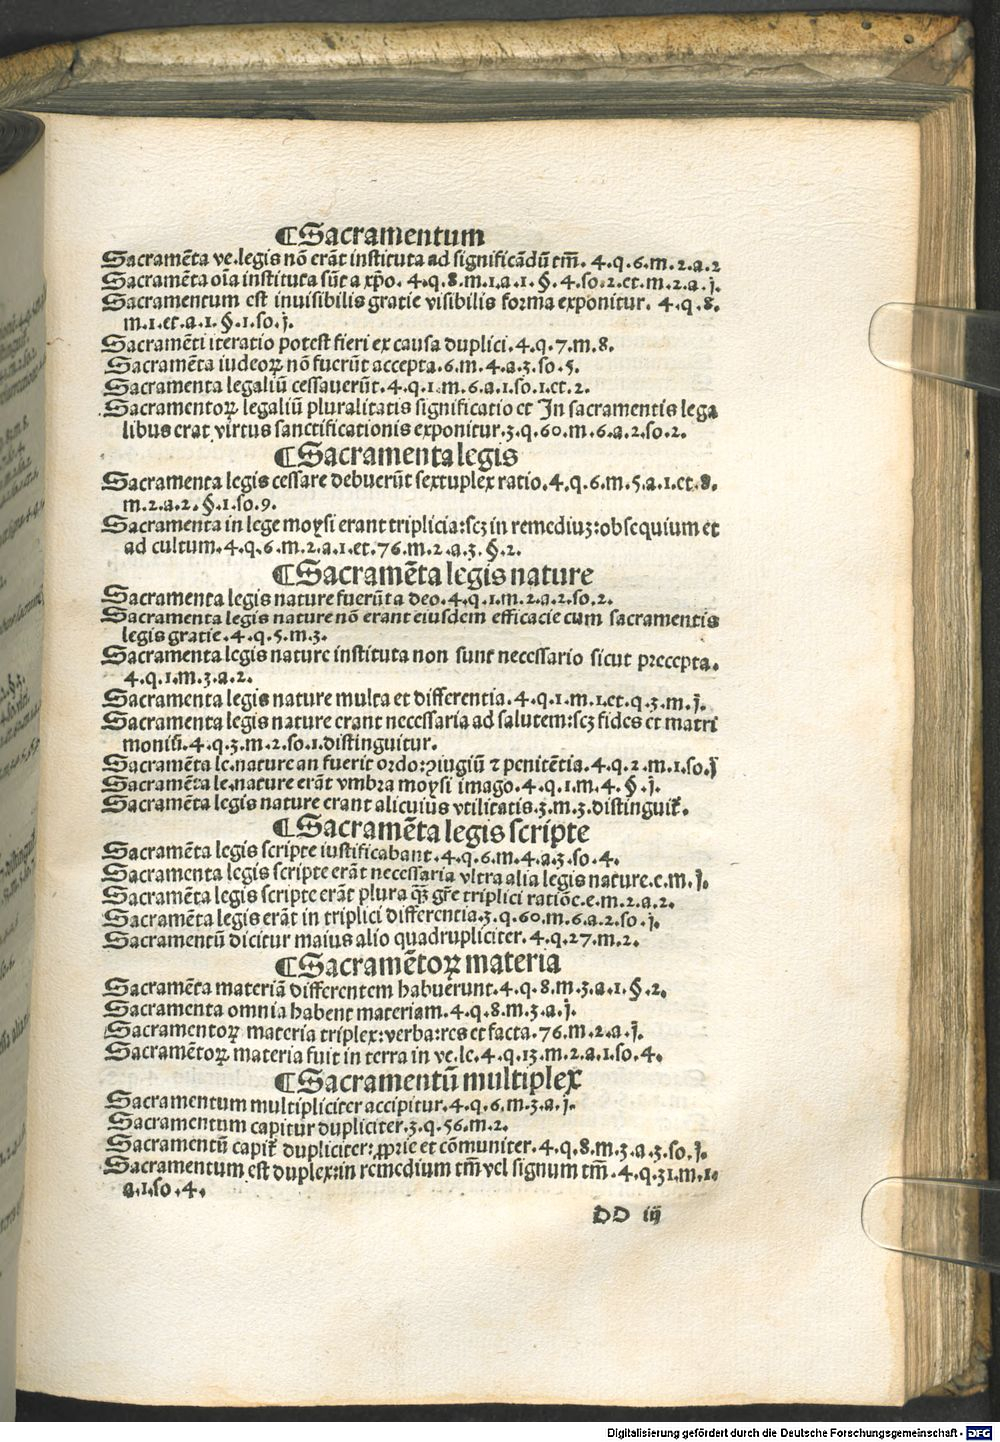 ¶Sacramentum
Sacramēta ve.legis nō erāt instituta ad significādū tm̄. 4.q.6.m.2.a.2
Sacramēta oīa instituta sūt a xp̄o. 4.q.8.m.1.a.1.§.4.so.2.et.m.2.a.j.
Sacramentum est inuisibilis gratie visibilis forma exponitur. 4.q.8.
m.1.et.a.1.§.1.so.j.
Sacramēti iteratio potest fieri ex causa duplici.4.q.7.m.8.
Sacramēta iudeoꝝ nō fuerūt accepta.6.m.4.a.3.so.5.
Sacramenta legaliū cessauerūt.4.q.1.m.6.a.1.so.1.et.2.
Sacramentoꝝ legaliū pluralitatis significatio et In sacramentis lega
libus erat virtus sanctificationis exponitur.3.q.60.m.6.a.2.so.2.
¶Sacramenta legis
Sacramenta legis cessare debuerūt sextuplex ratio.4.q.6.m.5.a.1.et.8.
m.2.a.2.§.1.so.9.
Sacramenta in lege moysi erant triplicia:scꝫ in remediuꝫ:obsequium et
ad cultum.4.q.6.m.2.a.1.et.76.m.2.a.3.§.2.
¶Sacramēta legis nature
Sacramenta legis nature fuerūt a deo.4.q.1.m.2.a.2.so.2.
Sacramenta legis nature nō erant eiusdem efficacie cum sacramentis
legis gratie.4.q.5.m.3.
Sacramenta legis nature instituta non sunt necessario sicut precepta.
4.q.1.m.3.a.2.
Sacramenta legis nature multa et differentia.4.q.1.m.1.et.q.3.m.j.
Sacramenta legis nature erant necessaria ad salutem:scꝫ fides et matri
moniū.4.q.3.m.2.so.1.distinguitur.
Sacramēta le.nature an fuerit ordo:ꝯiugiū ⁊ penitētia.4.q.2.m.1.so.j
Sacramēta le.nature erāt vmbra moysi imago.4.q.1.m.4.§.j.
Sacramēta legis nature erant alicuius vtilitatis.3.m.3.distinguiť.
¶Sacramēta legis scripte
Sacramēta legis scripte iustificabant.4.q.6.m.4.a.3.so.4.
Sacramenta legis scripte erāt necessaria vltra alia legis nature.e.m.j.
Sacramēta legis scripte erāt plura qꝫ̄ gr̄e triplici ratiōe.e.m.2.a.2.
Sacramēta legis erāt in triplici differentia.3.q.60.m.6.a.2.so.j.
Sacramentū dicitur maius alio quadrupliciter.4.q.27.m.2.
¶Sacramētoꝝ materia
Sacramēta materiā differentem habuerunt.4.q.8.m.3.a.1.§.2.
Sacramenta omnia habent materiam.4.q.8.m.3.a.j.
Sacramentoꝝ materia triplex:verba:res et facta.76.m.2.a.j.
Sacramētoꝝ materia fuit in terra in ve.le.4.q.13.m.2.a.1.so.4.
¶Sacramentū multiplex
Sacramentum multipliciter accipitur.4.q.6.m.3.a.j.
Sacramentum capitur dupliciter.3.q.56.m.2.
Sacramentū capiť dupliciter:ꝓprie et cōmuniter.4.q.8.m.3.a.3.so.j.
Sacramentum est duplex:in remedium tm̄ vel signum tm̄.4.q.31.m.1.
a.1.so.4.
DD iij
Digitalisierung gefördert durch die Deutsche Forschungsgemeinschaft - DFG